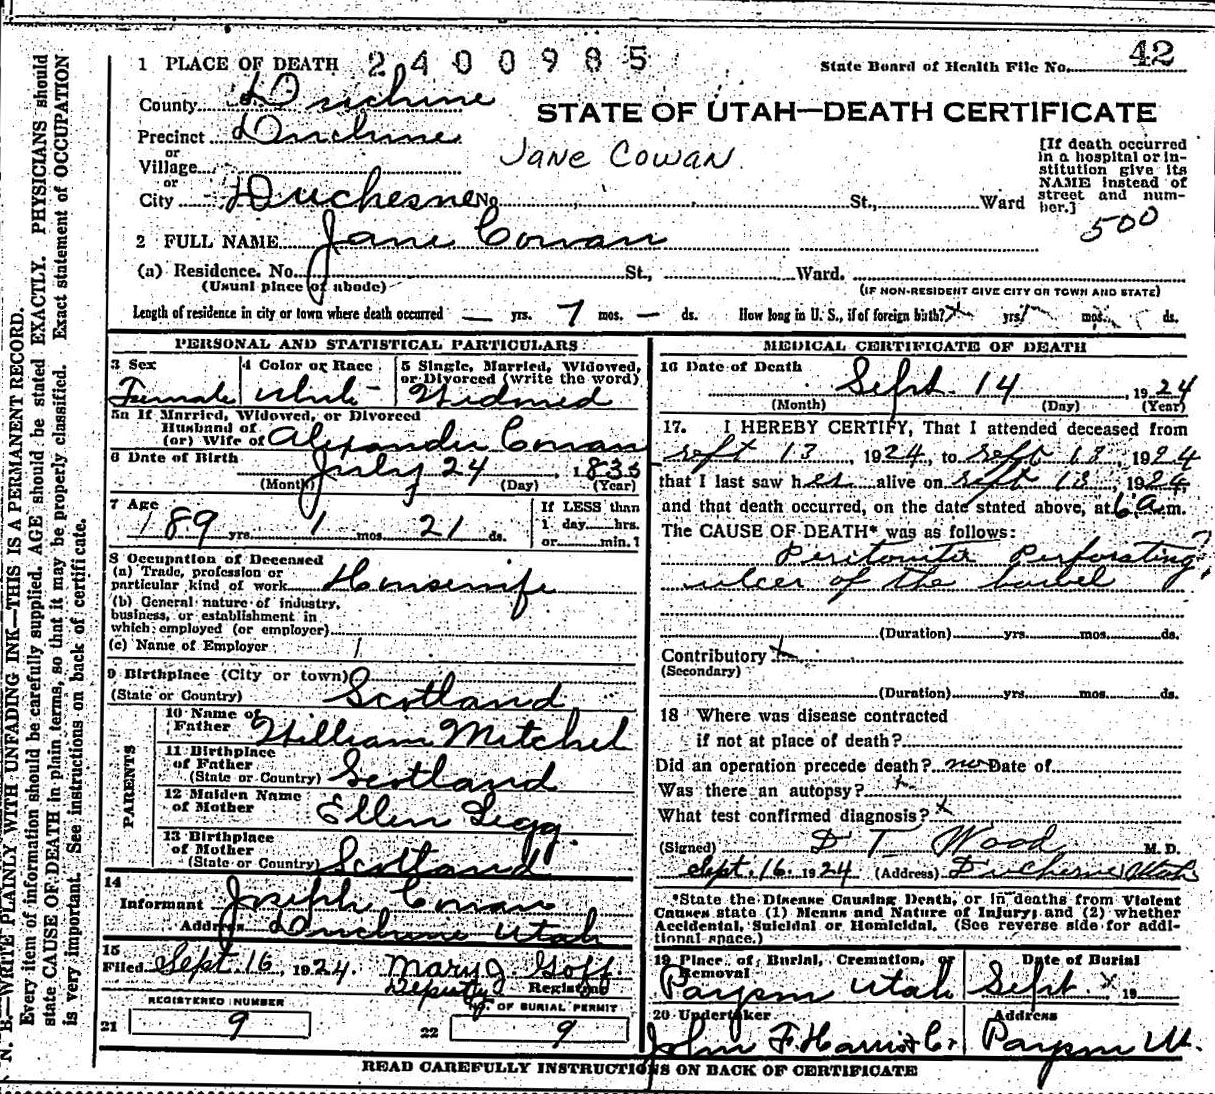 1 PLACE OF DEATH 2400985
State Board of Health File No. 42
County Duchesne
STATE OF UTAH—DEATH CERTIFICATE
Precinct Duchesne
or
Village
Jane Cowan
or
City Duchesne No. St., Ward
[If death occurred
in a hospital or in-
stitution give its
NAME instead of
street and num-
ber.]
500
2 FULL NAME Jane Cowan
(a) Residence. No. St., Ward.
(Usual place of abode)
(IF NON-RESIDENT GIVE CITY OR TOWN AND STATE)
Length of residence in city or town where death occurred — yrs. 7 mos. — ds. How long in U. S., if of foreign birth? yrs. mos. ds.
PERSONAL AND STATISTICAL PARTICULARS
3 Sex
Female
4 Color or Race
White
5 Single, Married, Widowed,
or Divorced (write the word)
Widowed
5a If Married, Widowed, or Divorced
Husband of
(or) Wife of Alexander Cowan
6 Date of Birth
July 24, 1835
(Month) (Day) (Year)
7 Age
89 yrs. 1 mos. 21 ds.
If LESS than
1 day hrs.
or min.?
8 Occupation of Deceased
(a) Trade, profession or
particular kind of work Housewife
(b) General nature of industry,
business, or establishment in
which employed (or employer)
(c) Name of Employer
9 Birthplace (City or town)
(State or Country) Scotland
PARENTS
10 Name of
Father William Mitchel
11 Birthplace
of Father
(State or Country) Scotland
12 Maiden Name
of Mother Ellen Legg.
13 Birthplace
of Mother
(State or Country) Scotland
14
Informant Joseph Cowan
Address Duchesne Utah
15
Filed Sept. 16, 1924. Mary J Goff
Deputy Registrar
REGISTERED NUMBER
21 9
OF BURIAL PERMIT
22 9
MEDICAL CERTIFICATE OF DEATH
16 Date of Death
Sept. 14, 1924
(Month) (Day) (Year)
17. I HEREBY CERTIFY, That I attended deceased from
Sept 13, 1924, to Sept 13, 1924
that I last saw her alive on Sept 13, 1924,
and that death occurred, on the date stated above, at 6 a.m.
The CAUSE OF DEATH* was as follows:
Peritonitis Perforating?
ulcer of the bowel
(Duration) yrs. mos. ds.
Contributory
(Secondary)
(Duration) yrs. mos. ds.
18 Where was disease contracted
if not at place of death?
Did an operation precede death? no Date of
Was there an autopsy?
What test confirmed diagnosis?
(Signed) D T Wood M. D.
Sept. 16. 1924 (Address) Duchesne Utah
*State the Disease Causing Death, or in deaths from Violent
Causes state (1) Means and Nature of Injury; and (2) whether
Accidental, Suicidal or Homicidal. (See reverse side for addi-
tional space.)
19 Place of Burial, Cremation, or
Removal
Payson Utah
Date of Burial
Sept. x 19
20 Undertaker
John F. Harris Co.
Address
Payson Ut.
READ CAREFULLY INSTRUCTIONS ON BACK OF CERTIFICATE
N. B.—WRITE PLAINLY WITH UNFADING INK—THIS IS A PERMANENT RECORD.
Every item of information should be carefully supplied. AGE should be stated EXACTLY. PHYSICIANS should
state CAUSE OF DEATH in plain terms, so that it may be properly classified. Exact statement of OCCUPATION
is very important. See instructions on back of certificate.